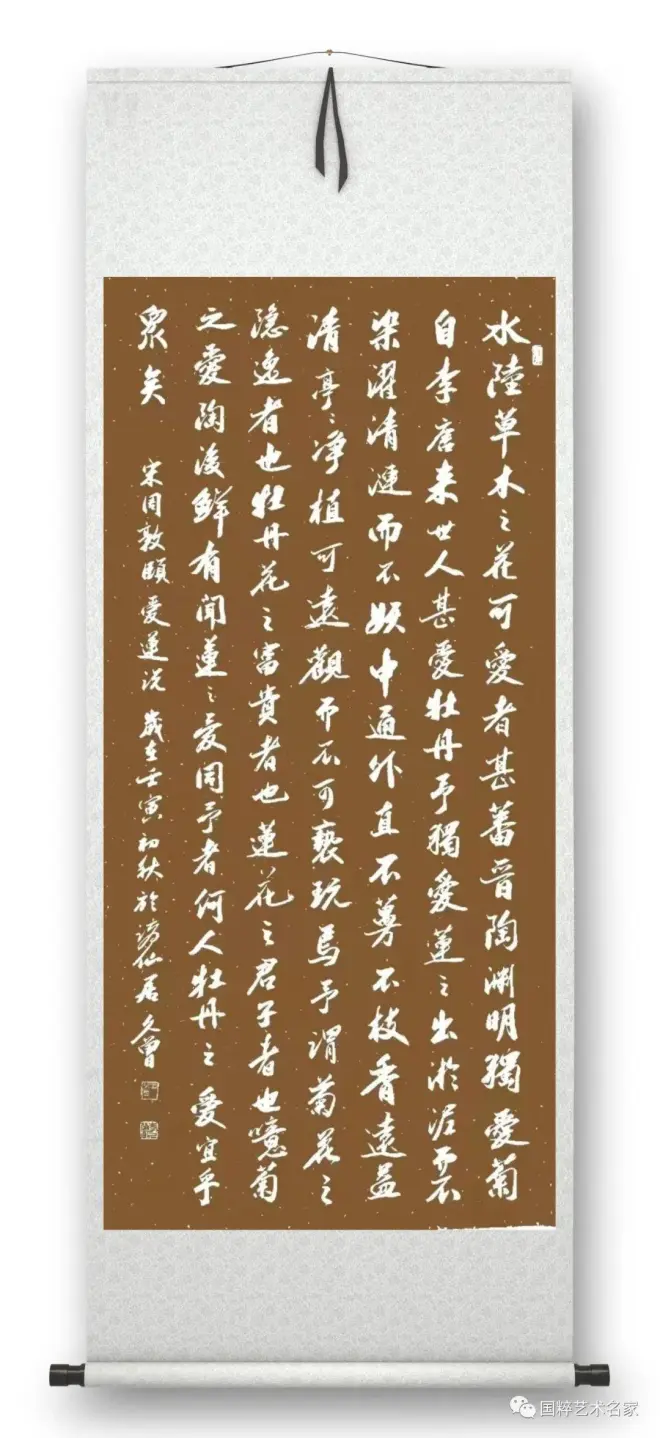 水陸草木之花可愛者甚蕃晉陶渊明獨愛菊
自李唐来世人甚愛牡丹予獨愛蓮之出淤泥而不
染濯清漣而不妖中通外直不蔓不枝香遠益
清亭〻净植可遠觀而不可褻玩焉予謂菊花之
隐逸者也牡丹花之富貴者也蓮花之君子者也噫菊
之愛陶後鮮有闻蓮〻愛同予者何人牡丹之愛宜乎
眾矣
宋周敦頤愛蓮说 歲在壬寅初秋於 仙居 久曾
国粹艺术名家